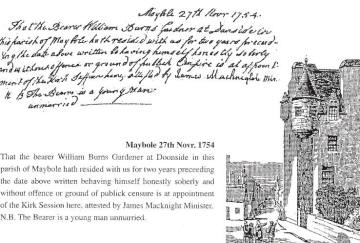 Maybole 27th Novr 1754.
That the Bearer William Burns Gardner at Dunside in
this parish of Maybole hath resided with us for two years preceed
ing the date above written behaving himself honestly soberly
and without offence or ground of publick Censure is at appoint
ment of the Kirk Session here, attested by James Macknight Min.
N B The Bearer is a young Man
unmarried
Maybole 27th Novr. 1754
That the bearer William Burns Gardener at Doonside in this
parish of Maybole hath resided with us for two years preceeding
the date above written behaving himself honestly soberly and
without offence or ground of publick censure is at appointment
of the Kirk Session here, attested by James Macknight Minister.
N.B. The Bearer is a young man unmarried.